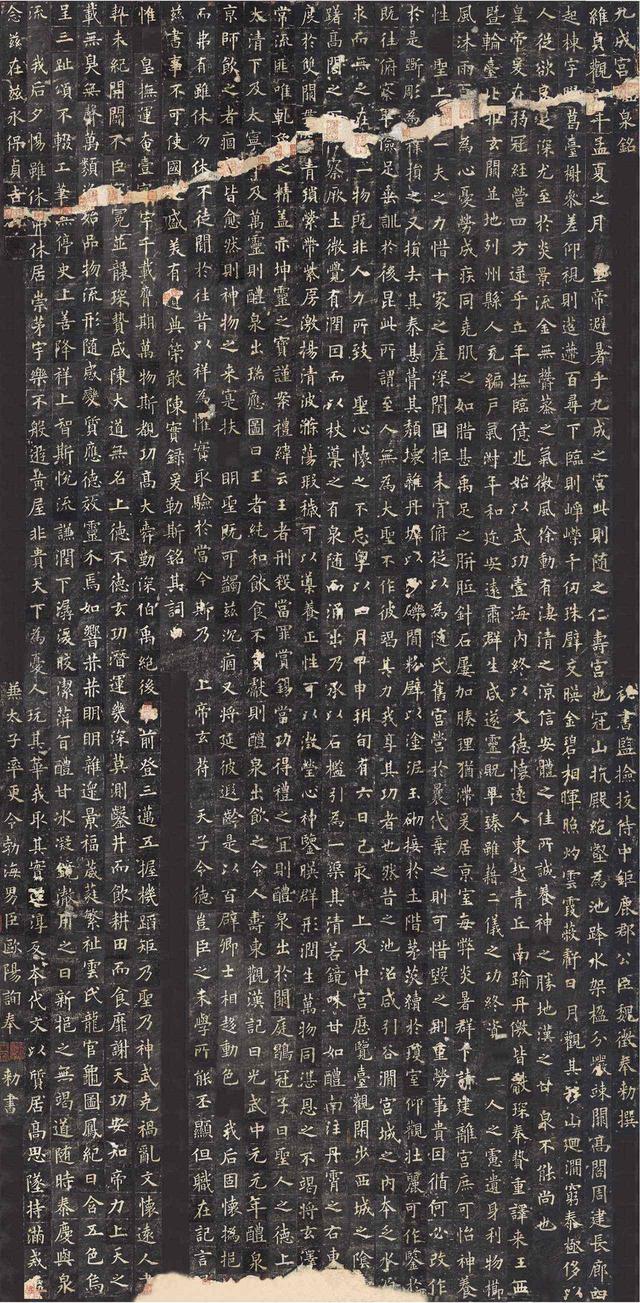 九成宮醴泉銘 祕書監檢校侍中鉅鹿郡公臣魏徵奉勅撰
維貞觀年孟夏之月 皇帝避暑乎九成之宮此則隨之仁壽宮也冠山抗殿絕壑為池跨水架楹分巖竦闕高閣周建長廊四
起棟宇葛臺榭參差仰視則迢遰百尋下臨則崢嶸千仞珠璧交暎金碧相暉照灼雲霞蔽虧日月觀其移山迴澗窮泰極侈以
人從欲良足深尤至於炎景流金無鬱蒸之氣微風徐動有淒清之涼信安體之佳所誠養神之勝地漢之甘泉不能尚也
皇帝爰在弱冠經營四方逮乎立年撫臨億兆始以武功壹海內終以文德懷遠人東越青丘南踰丹徼皆獻琛奉贄重譯來王西
暨輪臺北拒玄闕並地列州縣人充編戶氣淑年和迩安遠肅群生咸遂靈貺畢臻雖藉二儀之功終資 一人之慮遺身利物櫛
風沐雨為心憂勞成疾同堯肌之如腊甚禹足之胼胝針石屢加腠理猶滯爰居京室每弊炎暑群下請建離宮庶可怡神養
性 聖上一夫之力惜十家之產深閉固拒未肯俯從以為隨氏舊宮營於曩代棄之則可惜毀之則重勞事貴因循何必改作
於是斲彫為樸損之又損去其泰甚葺其頹壞雜丹墀以沙礫間粉壁以塗泥玉砌接於土階茅茨續於瓊室仰觀壯麗可作鑒於
既往俯察卑儉足垂訓於後昆此所謂至人無為大聖不作彼竭其力我享其功者也然昔之池沼咸引谷澗宮城之內本乏水源
求而無之在一物既非人力所致 聖心懷之不忘粵以四月甲申朔旬有六日己亥 上及中宮歷覽臺觀閑步西城之陰
躊躇高閣之下俯察厥土微覺有潤因而以杖導之有泉隨而涌出乃承以石檻引為一渠其清若鏡味甘如醴南注丹霄之右東
度於雙闕青瑣縈帶紫房激揚清波滌蕩瑕穢可以導養正性可以澂瑩心神鑒暎群形潤生萬物同湛恩之不竭將玄澤
常流匪唯乾之精蓋亦坤靈之寶謹案禮緯云王者刑殺當罪賞錫當功得禮之宜則醴泉出於闕庭鶡冠子曰聖人之德上
太清下及太寧中及萬靈則醴泉出瑞應圖曰王者純和飲食不貢獻則醴泉出飲之令人壽東觀漢記曰光武中元元年醴泉
京師飲之者痼皆愈然則神物之來寔扶 明聖既可蠲茲沉痼又將延彼遐齡是以百辟卿士相趨動色 我后固懷撝挹
而弗有雖休勿休不徒聞於往昔以祥為懼實取驗於當今斯乃 上帝玄符 天子令德豈臣之末學所能丕顯但職在記言
茲書事不可使國之盛美有遺典策敢陳實錄爰勒斯銘其詞
惟 皇撫運奄壹寰宇千載膺期萬物斯覩功高大舜勤深伯禹絕後前登三邁五握機蹈矩乃聖乃神武克禍亂文懷遠人書
契未紀開闢不臣冠冕並襲琛贄咸陳大道無名上德不德玄功潛運幾深莫測鑿井而飲耕田而食靡謝天功安知帝力上天之
載無臭無聲萬類資始品物流形隨感變質應德效靈介焉如響赫赫明明雜遝景福葳蕤繁祉雲氏龍官龜圖鳳紀日含五色烏
呈三趾頌不輟工筆無停史上善降祥上智斯悅流謙潤下潺湲皎潔蓱旨醴甘冰凝鏡澈用之日新挹之無竭道隨時泰慶與泉
流 我后夕惕雖休弗休居崇茅宇樂不般遊黃屋非貴天下為憂人玩其華我取其實還淳反本代文以質居高思墜持滿戒
念茲在茲永保貞吉 兼太子率更令勃海男臣歐陽詢奉 勅書